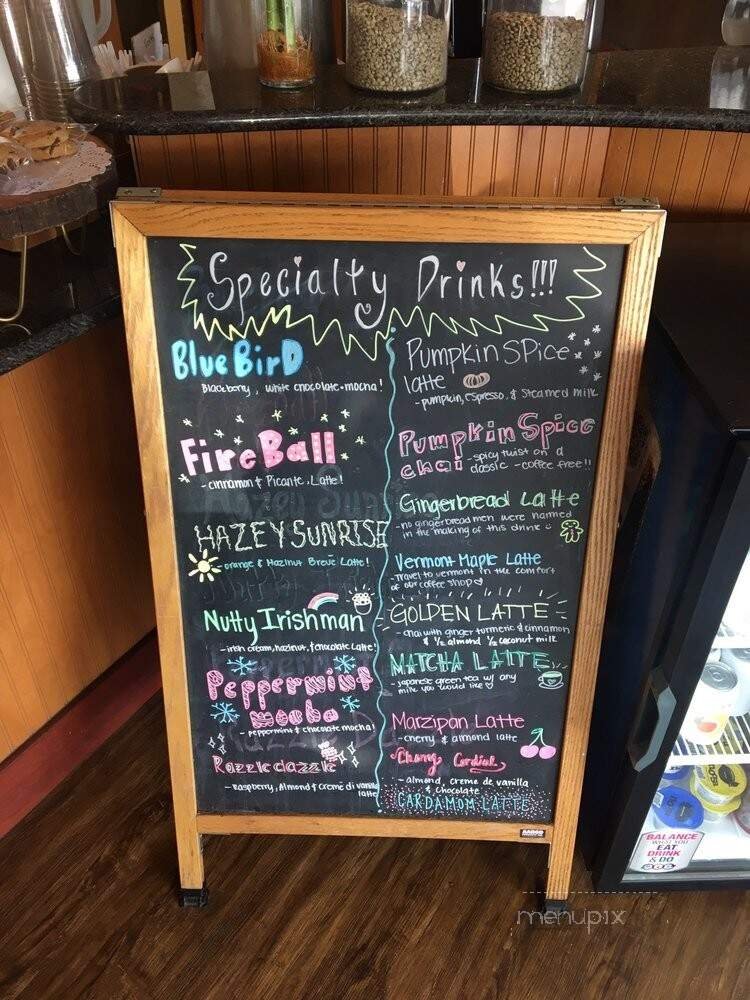 Specialty Drinks!!!
Blue BirD
Blackberry, white chocolate-mocha!
FireBall
-cinnamon & Picante, Latte!
HAZEY SUNRISE
-orange & Hazlnut Breve Latte!
Nutty Irishman
-irish cream, hazlenut, & chocolate latte!
Peppermint
Mocha
-peppermint & chocolate mocha!
Razzle dazzle
-Raspberry, Almond & creme di vanilla
latte!
Pumpkin SPice
latte
-pumpkin, espresso, & steamed milk
Pumpkin Spice
chai -spicy twist on a
classic -coffee free!!
Gingerbread Latte
-no gingerbread men were harmed
in the making of this drink
Vermont Maple Latte
-travel to vermont in the comfort
of our coffee shop
GOLDEN LATTE
-chai with ginger turmeric & cinnamon
& 1/2 almond 1/2 coconut milk
MATCHA LATTE
-japanese green tea w/ any
milk you would like
Marzipan Latte
-cherry & almond latte
Cherry Cordial
-almond, creme de vanilla
& chocolate
CARDAMOM LATTE
BALANCE
WHAT YOU
EAT
DRINK
& DO
menupix